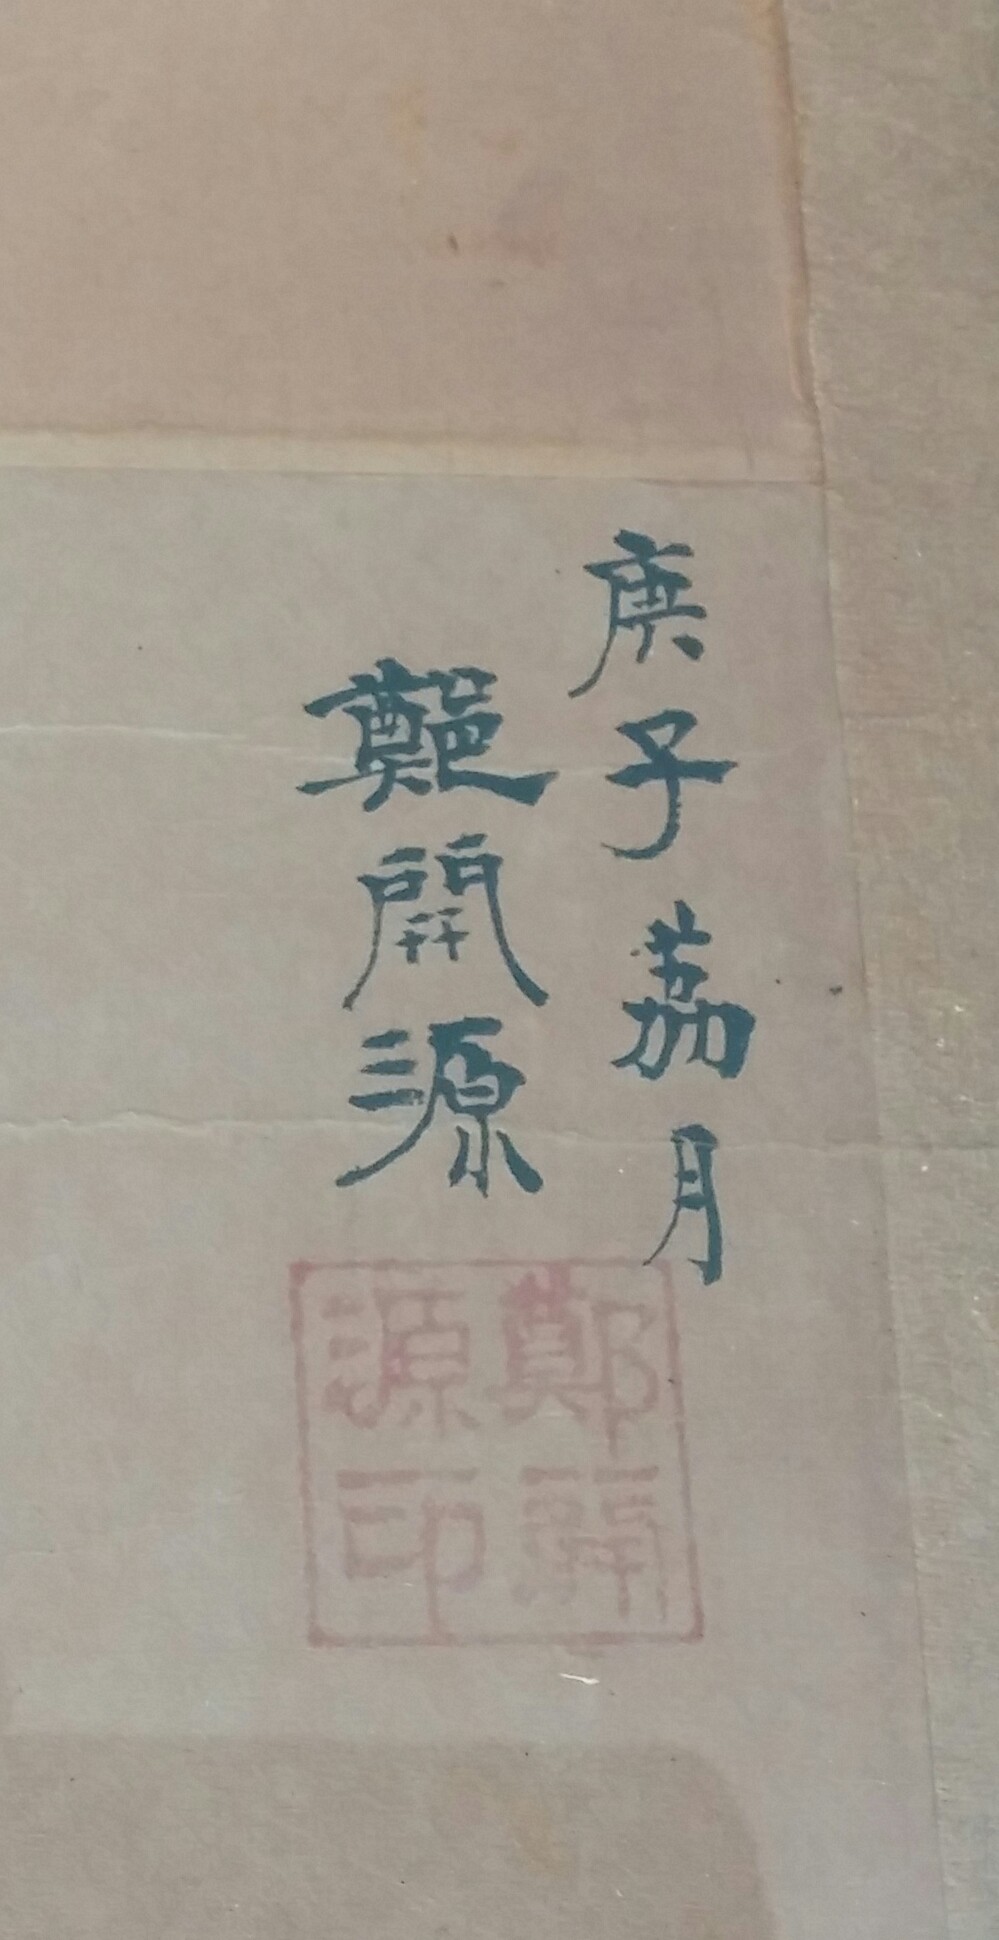 庚子荔月
鄭開源
鄭開
源印